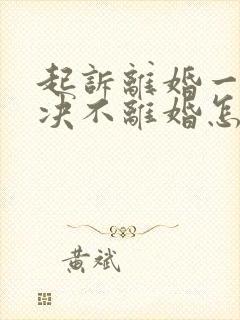 起訴離婚一
决不離婚怎
黄斌